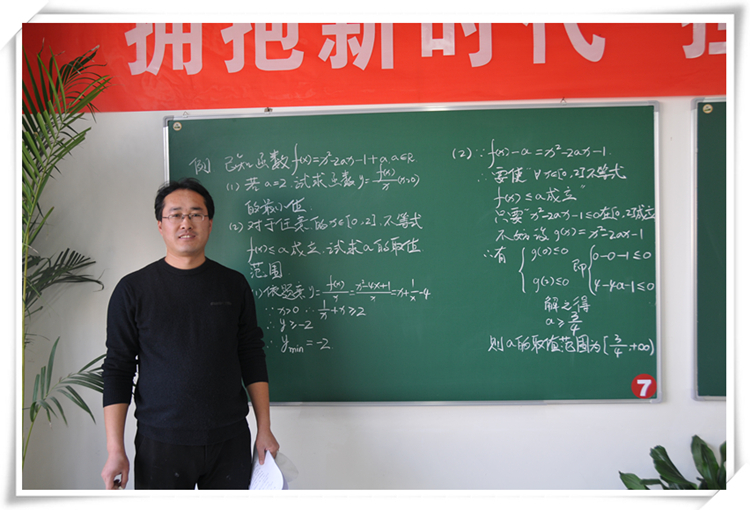 拥抱新时代
例 已知函数f(x)=x²-2ax-1+a, a∈R.
(1) 若a=2, 试求函数y=f(x)/x (x>0)
的最小值.
(2) 对于任意的x∈[0,2], 不等式
f(x)≤a成立, 试求a的取值
范围
(1) 依题意 y=f(x)/x=x²-4x+1/x=x+1/x-4
∵x>0 ∴1/x+x≥2
∴y≥-2
∴ymin=-2
(2) ∵f(x)-a=x²-2ax-1.
∴要使"∀x∈[0,2],不等式
f(x)≤a成立"
只要"x²-2ax-1≤0在[0,2]成立
不妨设g(x)=x²-2ax-1
∴有 { g(0)≤0 即 { 0-0-1≤0
g(2)≤0 4-4a-1≤0
解之得
a≥3/4
则a的取值范围为[3/4,+∞)
7